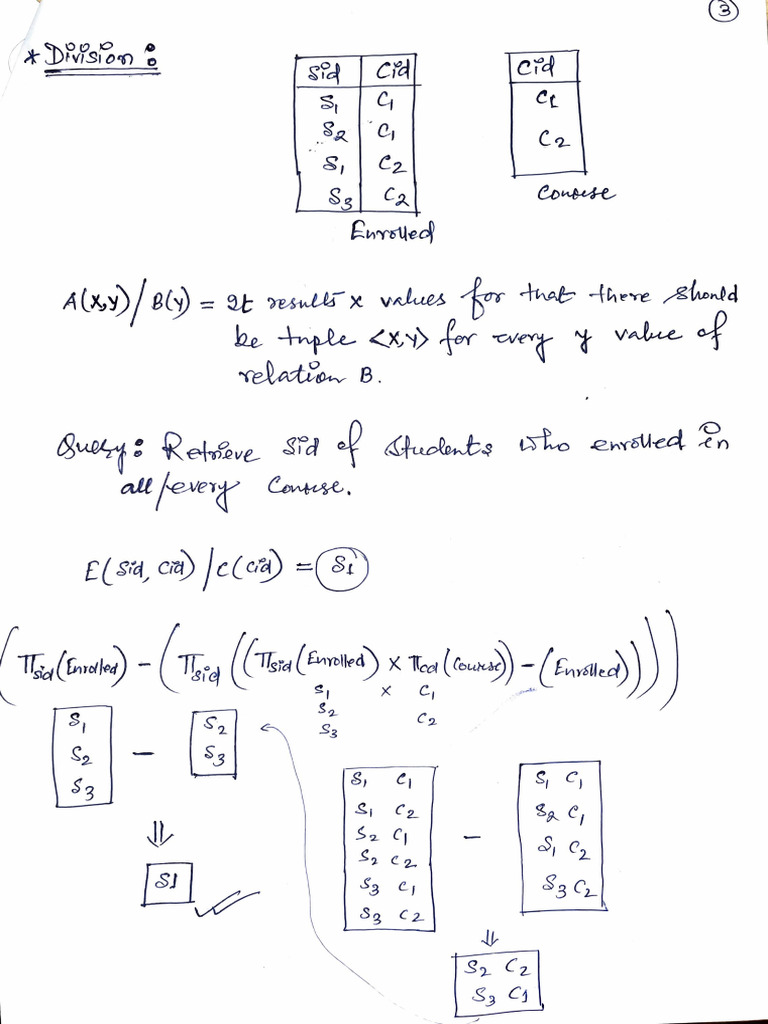 ③
* Division :
Sid Cid
S1 C1
S2 C1
S1 C2
S3 C2
Enrolled
Cid
C1
C2
Course
A(x,y) / B(y) = It results x values for that there should
be tuple <x,y> for every y value of
relation B.
Query : Retrieve Sid of Students who enrolled in
all/every Course.
E(Sid, Cid) / C(Cid) = S1
(πsid(Enrolled) - (πsid((πsid(Enrolled) × πcid(Course)) - (Enrolled))))
S1 × C1
S2 C2
S3
S1
S2
S3
-
S2
S3
⇓
S1
S1 C1
S1 C2
S2 C1
S2 C2
S3 C1
S3 C2
-
S1 C1
S2 C1
S1 C2
S3 C2
⇓
S2 C2
S3 C1